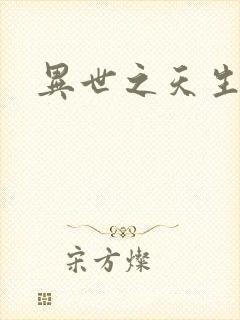 異世之天生
宋方燦